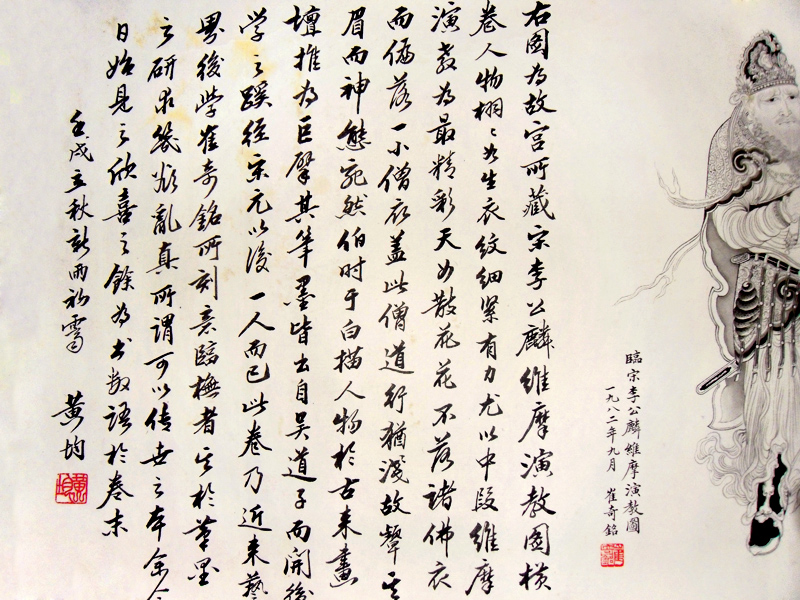 臨宗李公麟維摩演教圖
一九八二年九月 崔奇銘
右图为故宫所藏宗李公麟维摩演教图横
卷人物栩々如生衣纹细紧有力尤以中段维摩
演教为最精彩天女散花花不落诸佛衣
而偏落一小僧衣盖此僧道行犹浅故颦其
眉而神态宛然伯时于白描人物於古来画
壇推为巨擘其笔墨皆出自吴道子而開後
学之蹊径宗元以後一人而已此卷乃近来藝
界後学崔奇銘所刻意臨橅者其於笔墨
之研求幾欲亂真所谓可以传世之本余今
日始見之欣喜之餘为书数语於卷末
壬戌立秋新雨初霽 黄均